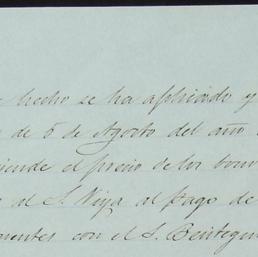 hecho se ha aplicado y
de 6 de Agosto del año
el precio de los bonos
al S. Noya al pago de
con el S. Beitegui